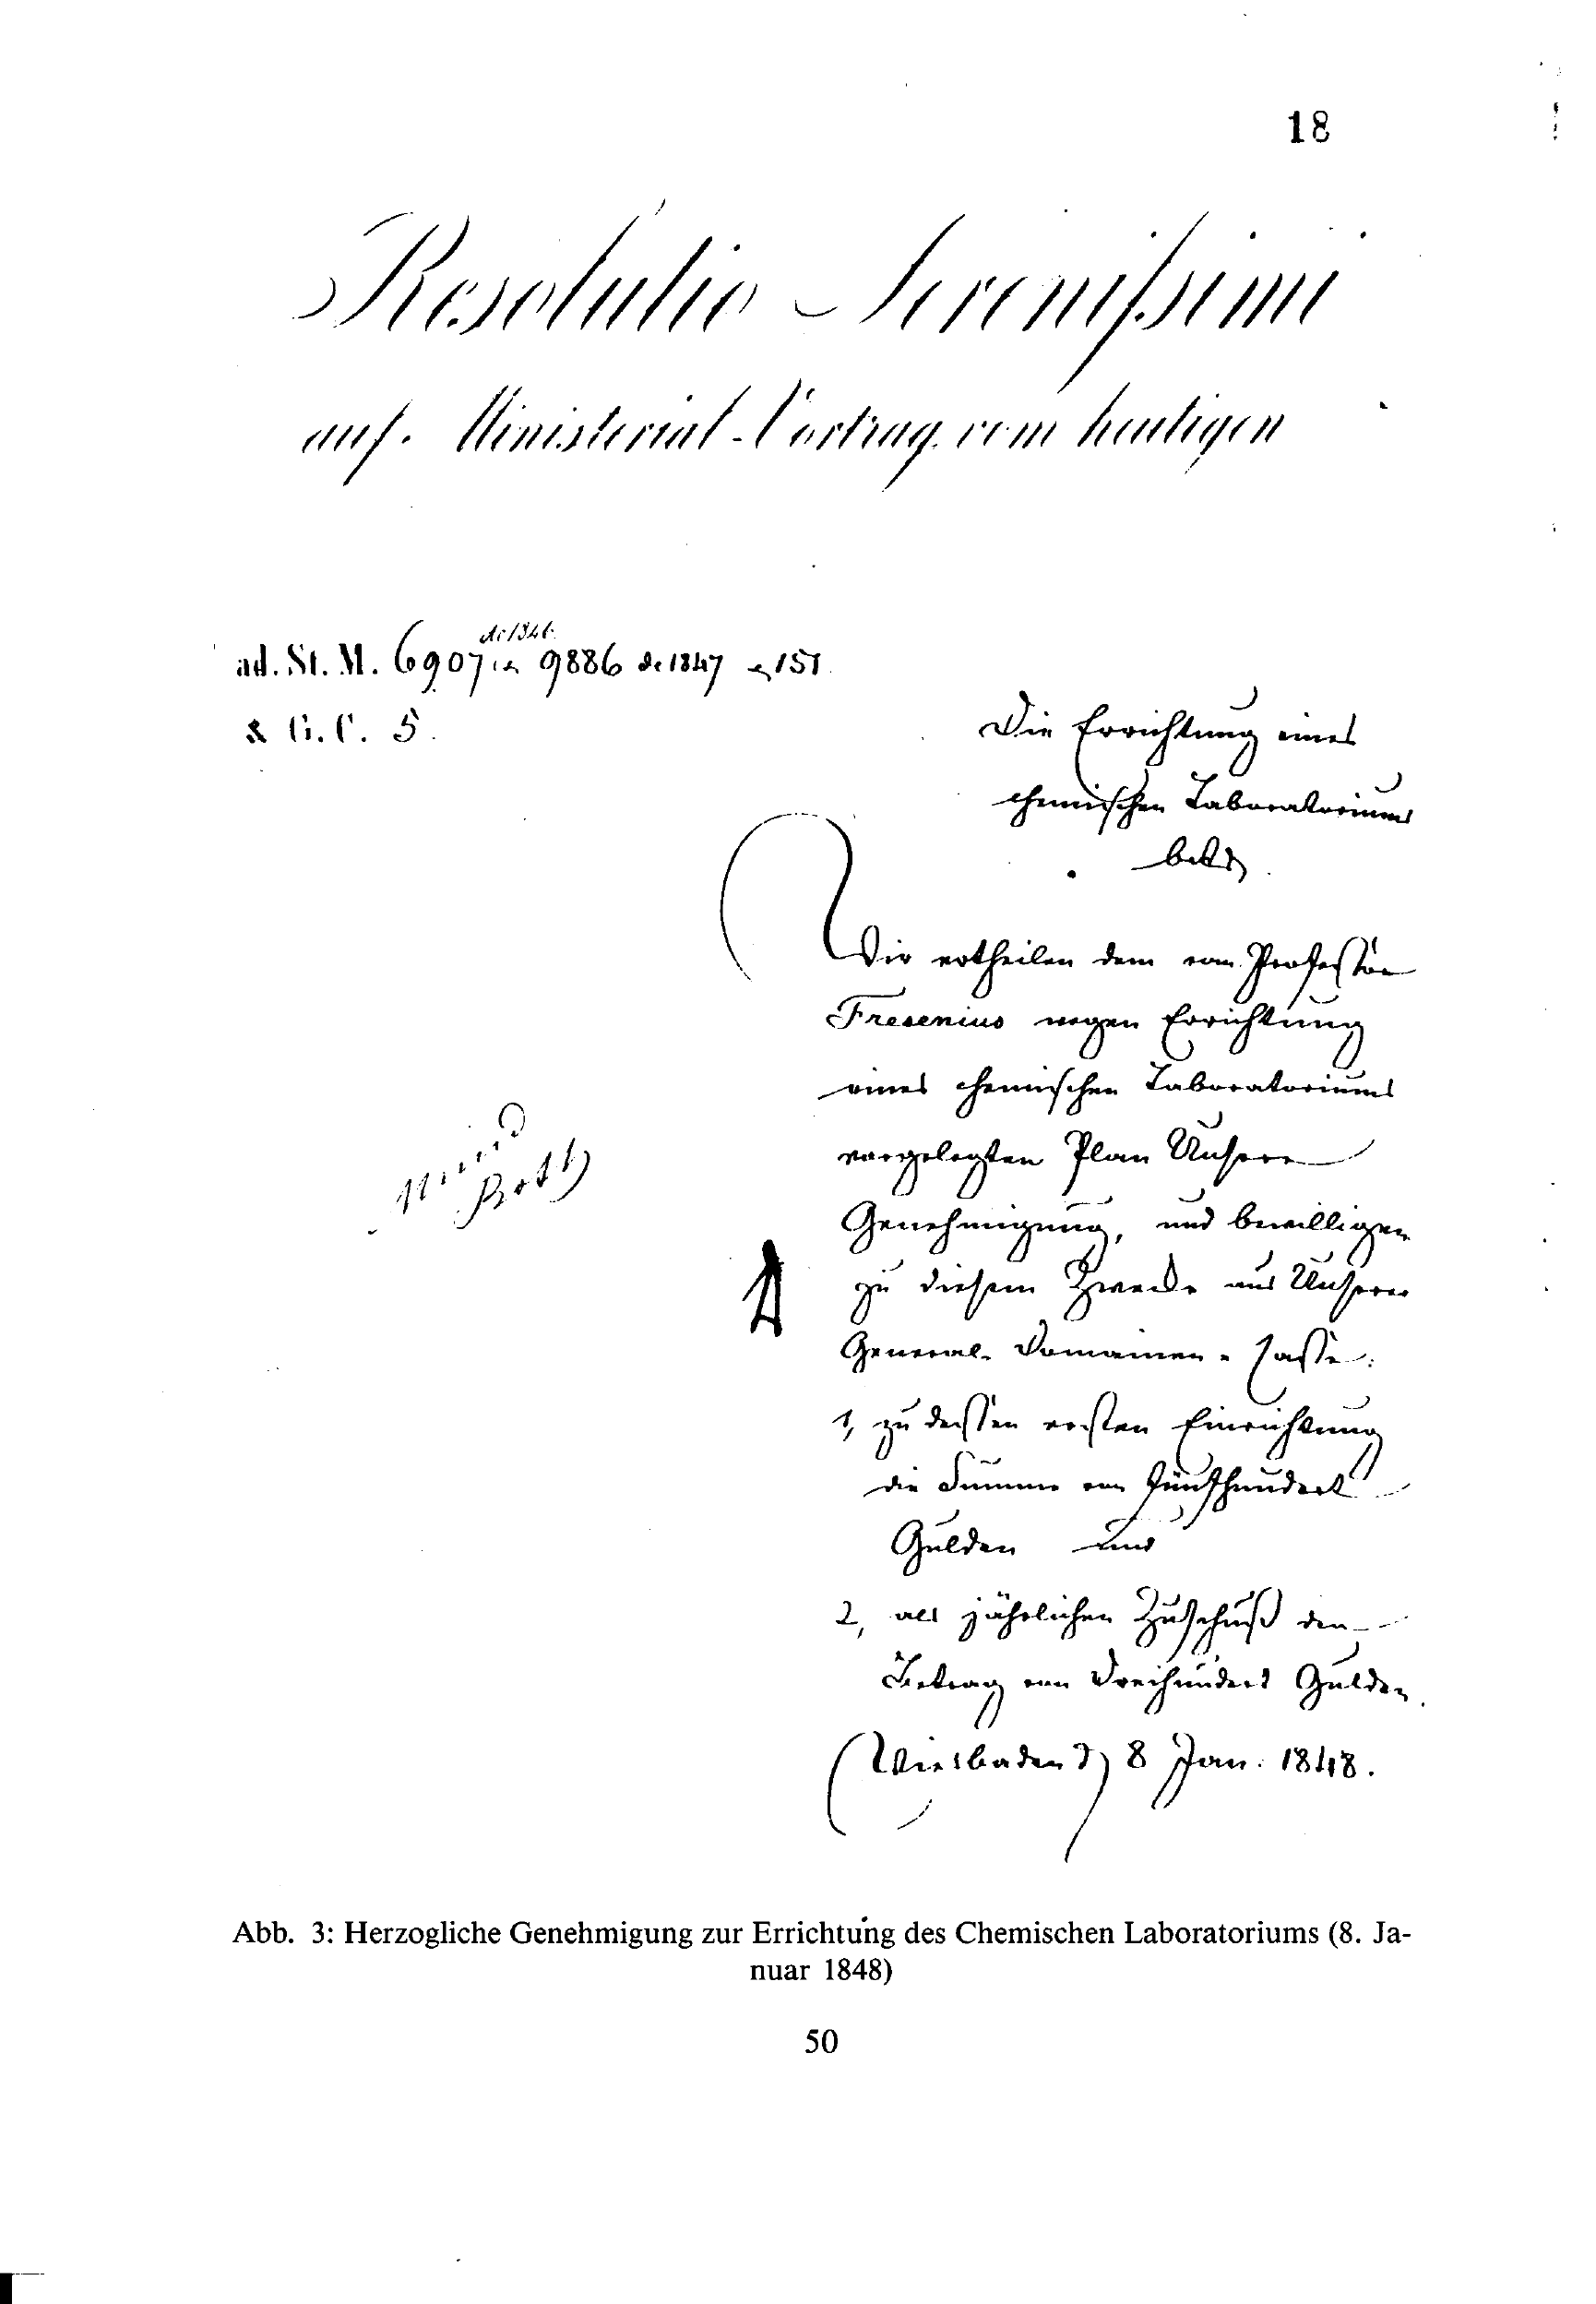 18
Resolutio Serenißimi
auf Ministerial-Vortrag vom heutigen
de 1846.
ad. St. M. 6907 9886 de 1847 151
& G. C. 5.
Die Errichtung eines
chemischen Laboratoriums
betr
Wir ertheilen dem vom Professor
Fresenius wegen Errichtung
eines chemischen Laboratoriums
vorgelegten Plan Unsere
Genehmigung, und bewilligen
zu diesem Zwecke aus Unserer
General-Domainen-Casse:
1, zu dessen ersten Einrichtung
die Summe von fünfhundert
Gulden und
2, als jährlichen Zuschuß den
Betrag von Dreihundert Gulden.
Wiesbaden d 8 Jan. 1848.
Abb. 3: Herzogliche Genehmigung zur Errichtung des Chemischen Laboratoriums (8. Ja-
nuar 1848)
50